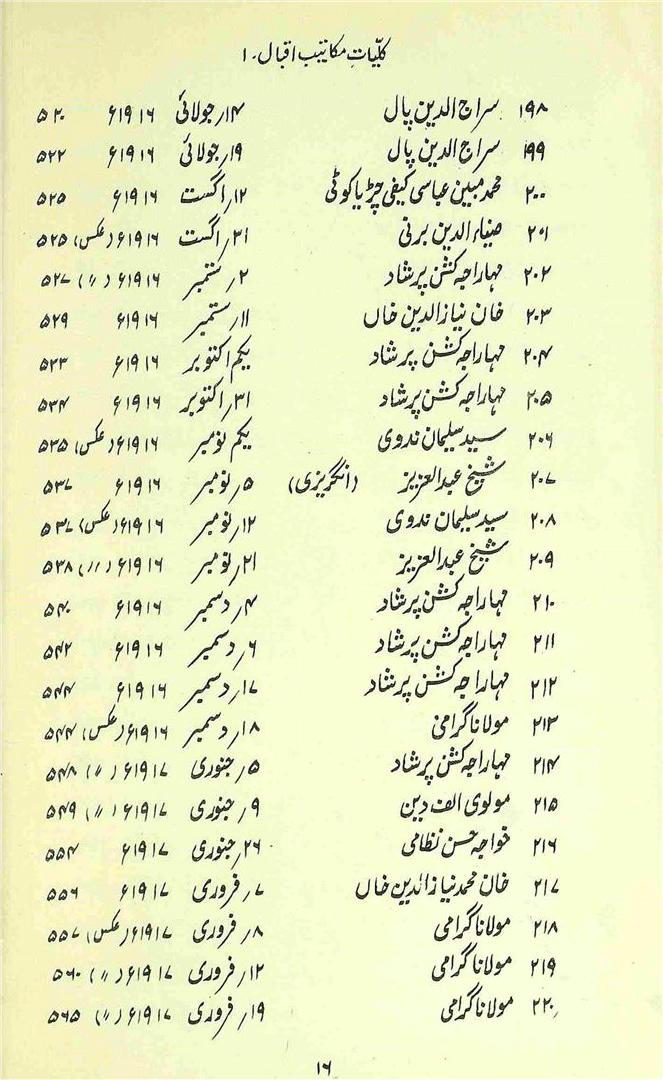 کلیاتِ مکاتیب اقبال۔۱
۱۹۸ سراج الدین پال ۱۴؍جولائی ۱۹۱۶ء ۵۲۰
۱۹۹ سراج الدین پال ۱۹؍جولائی ۱۹۱۶ء ۵۲۲
۲۰۰ محمد مبین عباسی کیفی چڑیاکوٹی ۱۲؍اگست ۱۹۱۶ء ۵۲۵
۲۰۱ ضیاء الدین برنی ۳۱؍اگست ۱۹۱۶ء (عکس) ۵۲۵
۲۰۲ مہاراجہ کشن پرشاد ۲؍ستمبر ۱۹۱۶ء (〃) ۵۲۷
۲۰۳ خان نیاز الدین خاں ۱۱؍ستمبر ۱۹۱۶ء ۵۲۹
۲۰۴ مہاراجہ کشن پرشاد یکم اکتوبر ۱۹۱۶ء ۵۲۳
۲۰۵ مہاراجہ کشن پرشاد ۳۱؍اکتوبر ۱۹۱۶ء ۵۳۴
۲۰۶ سید سلیمان ندوی یکم نومبر ۱۹۱۶ء (عکس) ۵۳۵
۲۰۷ شیخ عبدالعزیز (انگریزی) ۵؍نومبر ۱۹۱۶ء ۵۳۷
۲۰۸ سید سلیمان ندوی ۱۲؍نومبر ۱۹۱۶ء (عکس) ۵۳۷
۲۰۹ شیخ عبدالعزیز ۲۱؍نومبر ۱۹۱۶ء (〃) ۵۳۸
۲۱۰ مہاراجہ کشن پرشاد ۴؍دسمبر ۱۹۱۶ء ۵۴۰
۲۱۱ مہاراجہ کشن پرشاد ۶؍دسمبر ۱۹۱۶ء ۵۴۲
۲۱۲ مہاراجہ کشن پرشاد ۱۷؍دسمبر ۱۹۱۶ء ۵۴۴
۲۱۳ مولانا گرامی ۱۸؍دسمبر ۱۹۱۶ء (عکس) ۵۴۴
۲۱۴ مہاراجہ کشن پرشاد ۵؍جنوری ۱۹۱۷ء (〃) ۵۴۸
۲۱۵ مولوی الف دین ۹؍جنوری ۱۹۱۷ء (〃) ۵۴۹
۲۱۶ خواجہ حسن نظامی ۲۶؍جنوری ۱۹۱۷ء ۵۵۴
۲۱۷ خان محمد نیاز الدین خاں ۷؍فروری ۱۹۱۷ء ۵۵۶
۲۱۸ مولانا گرامی ۸؍فروری ۱۹۱۷ء (عکس) ۵۵۷
۲۱۹ مولانا گرامی ۱۲؍فروری ۱۹۱۷ء (〃) ۵۶۰
۲۲۰ مولانا گرامی ۱۹؍فروری ۱۹۱۷ء (〃) ۵۶۵
۱۶